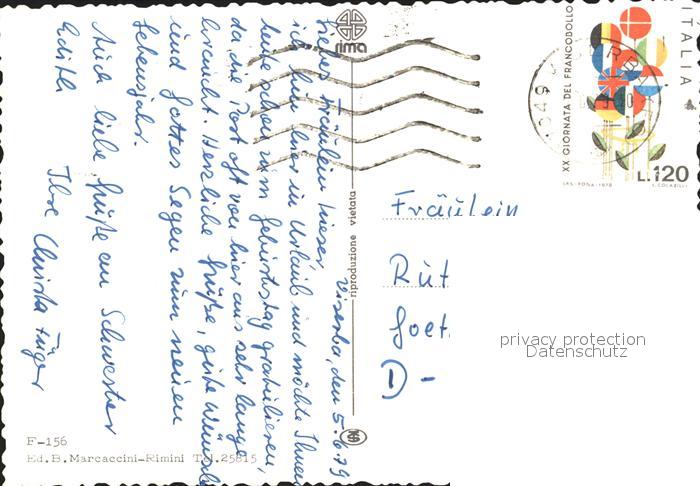 Viserba, den 5.6.79
Liebes Fräulein Nieser
ich bin hier in Urlaub und möchte Ihnen
heute schon zum Geburtstag gratulieren,
da die Post oft von hier aus sehr lange
braucht. Herzliche Grüße, gute Wünsche
und Gottes Segen zum neuen
Lebensjahr.
Auch liebe Grüße an Schwester
Edith
Ihre Christa Füger
rima
riproduzione vietata
F-156
Ed.B. Marcaccini-Rimini Tel.25815
Fräulein
Rut
Goet
D-
privacy protection
Datenschutz
ITALIA
XX GIORNATA DEL FRANCOBOLLO
L.120